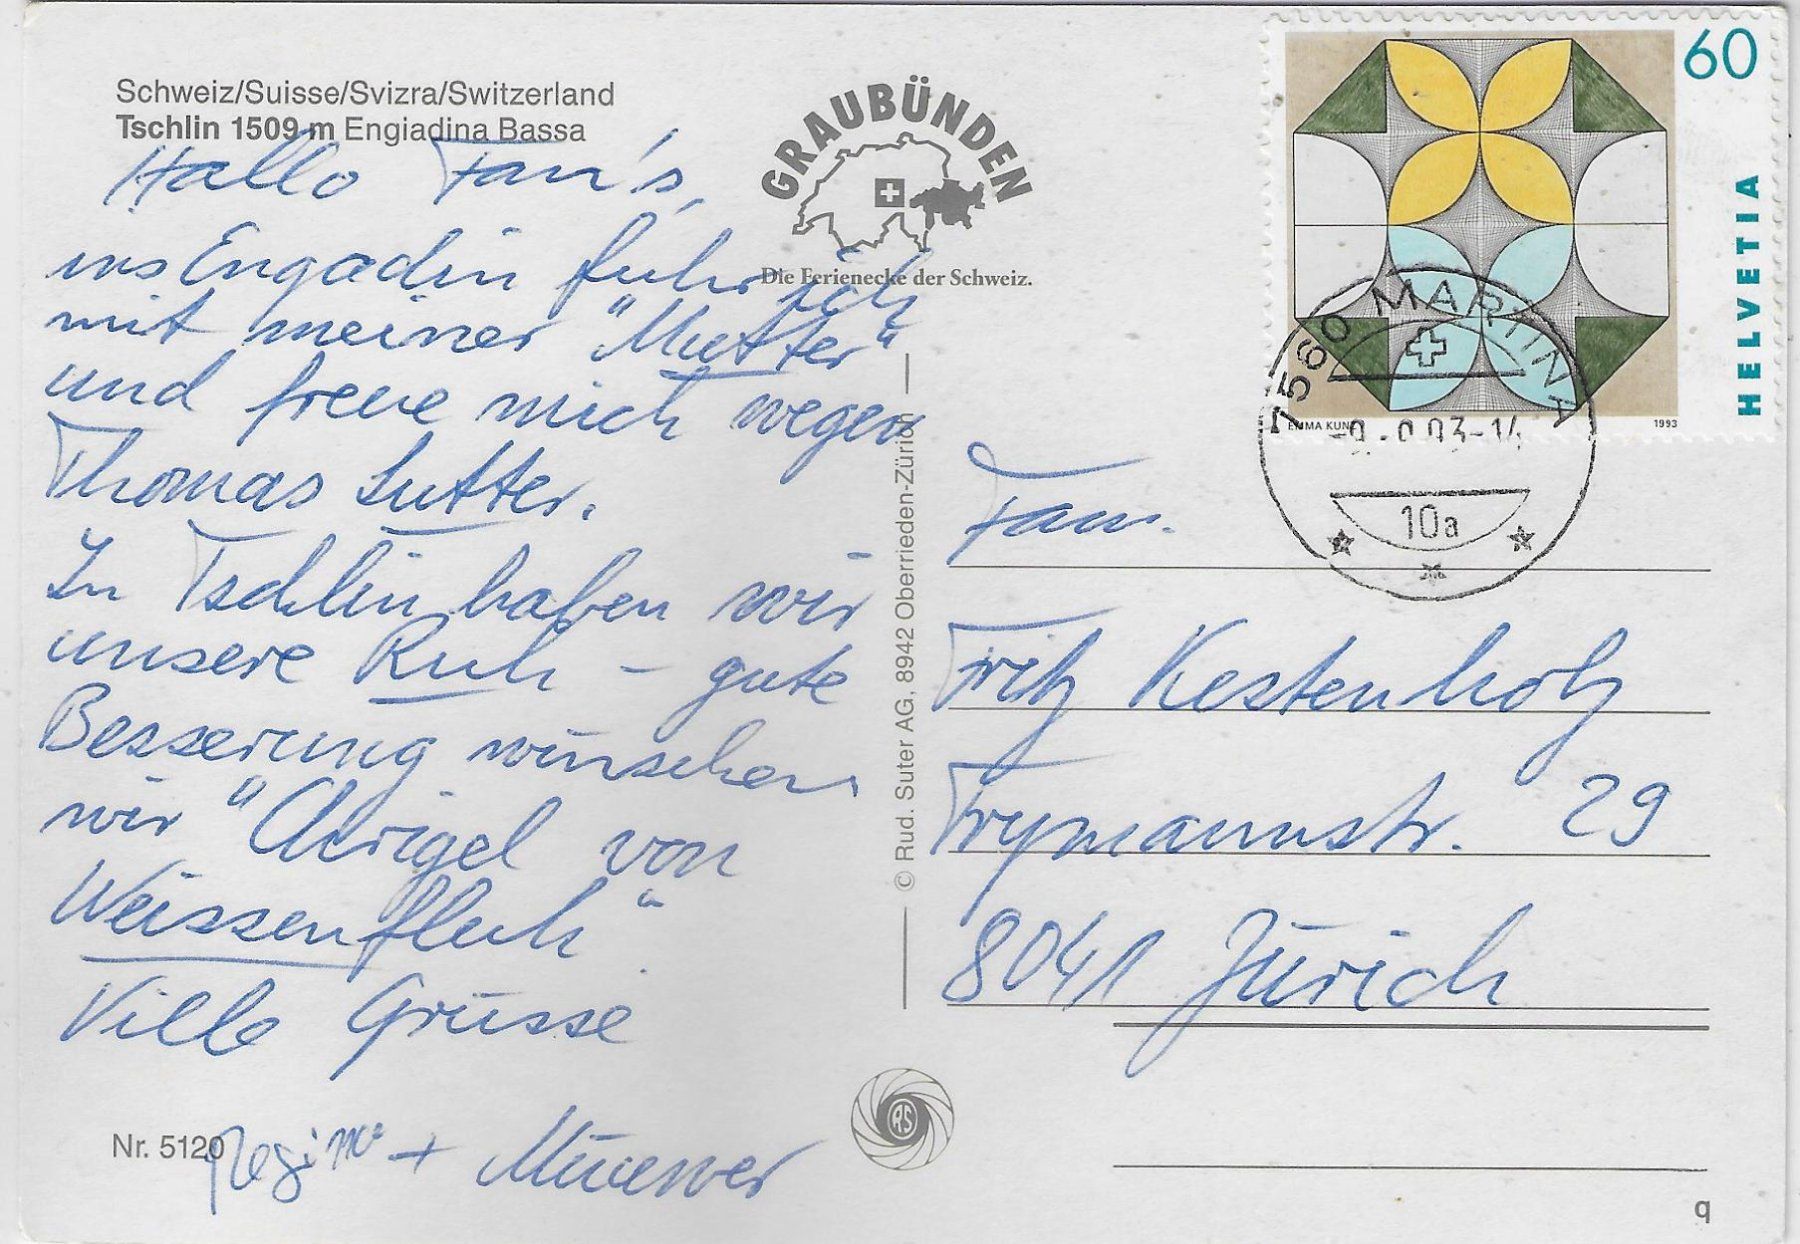 Schweiz/Suisse/Svizra/Switzerland
Tschlin 1509 m Engiadina Bassa
GRAUBÜNDEN
Die Ferienecke der Schweiz.
Hallo Fan's,
ins Engadin fuhr ich
mit meiner "Mutter"
und freue mich wegen
Thomas Sutter.
In Tschlin haben wir
unsere Ruh – gute
Besserung wünschen
wir "Chrigel von
Weissenfluh"
Viele Grüsse
+
Nr. 5120
© Rud. Suter AG, 8942 Oberrieden-Zürich
RS
60
HELVETIA
EMMA KUN
1993
7560 MARTINA
10a
Fam.
Fritz Kestenholz
Frymannstr. 29
8041 Zürich
q